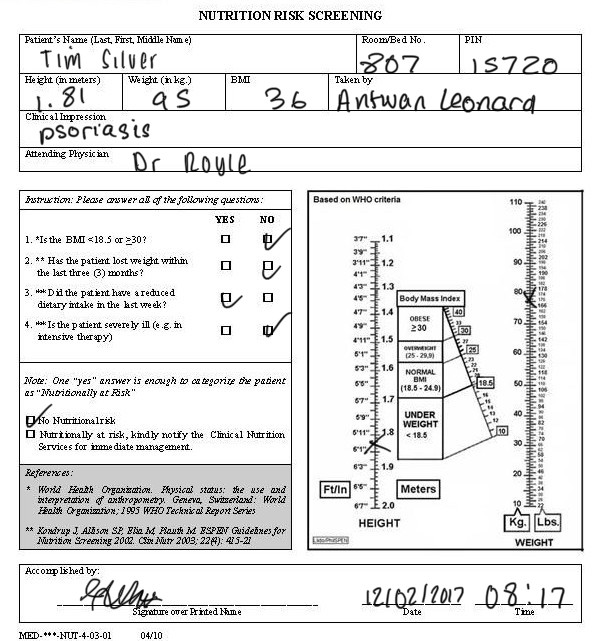 NUTRITION RISK SCREENING
Patient's Name (Last, First, Middle Name) Room/Bed No. PIN
Tim Silver 807 15720
Height (in meters) Weight (in kg.) BMI Taken by
1.81 95 36 Antwan Leonard
Clinical Impression
psoriasis
Attending Physician Dr Royle
Instruction: Please answer all of the following questions:
YES NO
1. *Is the BMI <18.5 or ≥30?
2. ** Has the patient lost weight within
the last three (3) months?
3. ** Did the patient have a reduced
dietary intake in the last week?
4. ** Is the patient severely ill (e.g. in
intensive therapy)
Note: One "yes" answer is enough to categorize the patient
as "Nutritionally at Risk"
No Nutritional risk
Nutritionally at risk, kindly notify the Clinical Nutrition
Services for immediate management.
References:
* World Health Organization. Physical status: the use and
interpretation of anthropometry. Geneva, Switzerland: World
Health Organization; 1995 WHO Technical Report Series
** Kondrup J, Allison SP, Elia M, Plauth M. ESPEN Guidelines for
Nutrition Screening 2002. Clin Nutr 2003; 22(4): 415-21
Based on WHO criteria
3'7" 1.1
3'9"
3'11" 1.2
4'1"
4'3" 1.3
4'5"
4'7" 1.4
4'9"
4'11" 1.5
5'1"
5'3" 1.6
5'5"
5'7" 1.7
5'9"
5'11" 1.8
6'1"
6'3" 1.9
6'5"
6'7" 2.0
Ft/In Meters
HEIGHT
Body Mass Index
OBESE
≥30
OVERWEIGHT
(25 - 29,9)
NORMAL
BMI
(18.5 - 24.9)
UNDER
WEIGHT
< 18.5
40
30
25
18.5
10
110
100
90
80
70
60
50
40
30
20
10
Kg. Lbs.
WEIGHT
Accomplished by:
12/02/2017 08:17
Signature over Printed Name Date Time
MED-***-NUT-4-03-01 04/10